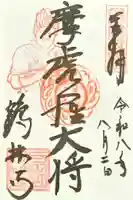 奉拝
令和八年
八月二日
摩虎羅大将
鶴林寺